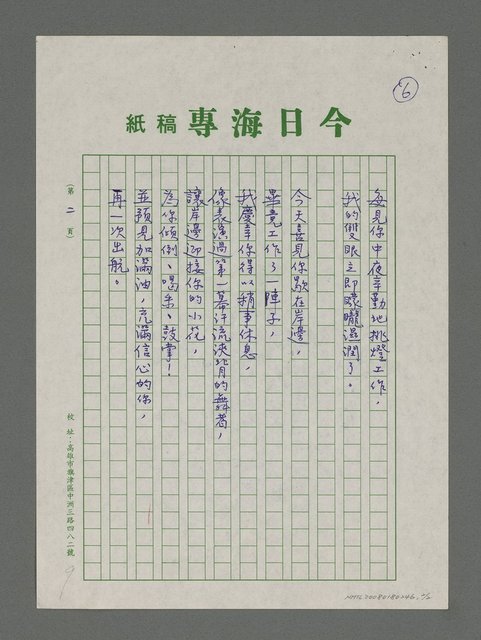 6
今日海專稿紙
每見你中夜辛勤地挑燈工作，
我的雙眼立即曚曨濕潤了。
今天喜見你歇在岸邊，
畢竟工作了一陣子，
我慶幸你得以稍事休息，
像表演過第一幕汗流浹背的舞者，
讓岸邊迎接你的小花，
為你傾倒、喝采、鼓掌！
並預見加滿油，充滿信心的你，
再一次出航。
（第二頁）
校址：高雄市旗津區中洲三路四八二號
9
NMTL20080180246, 2/2